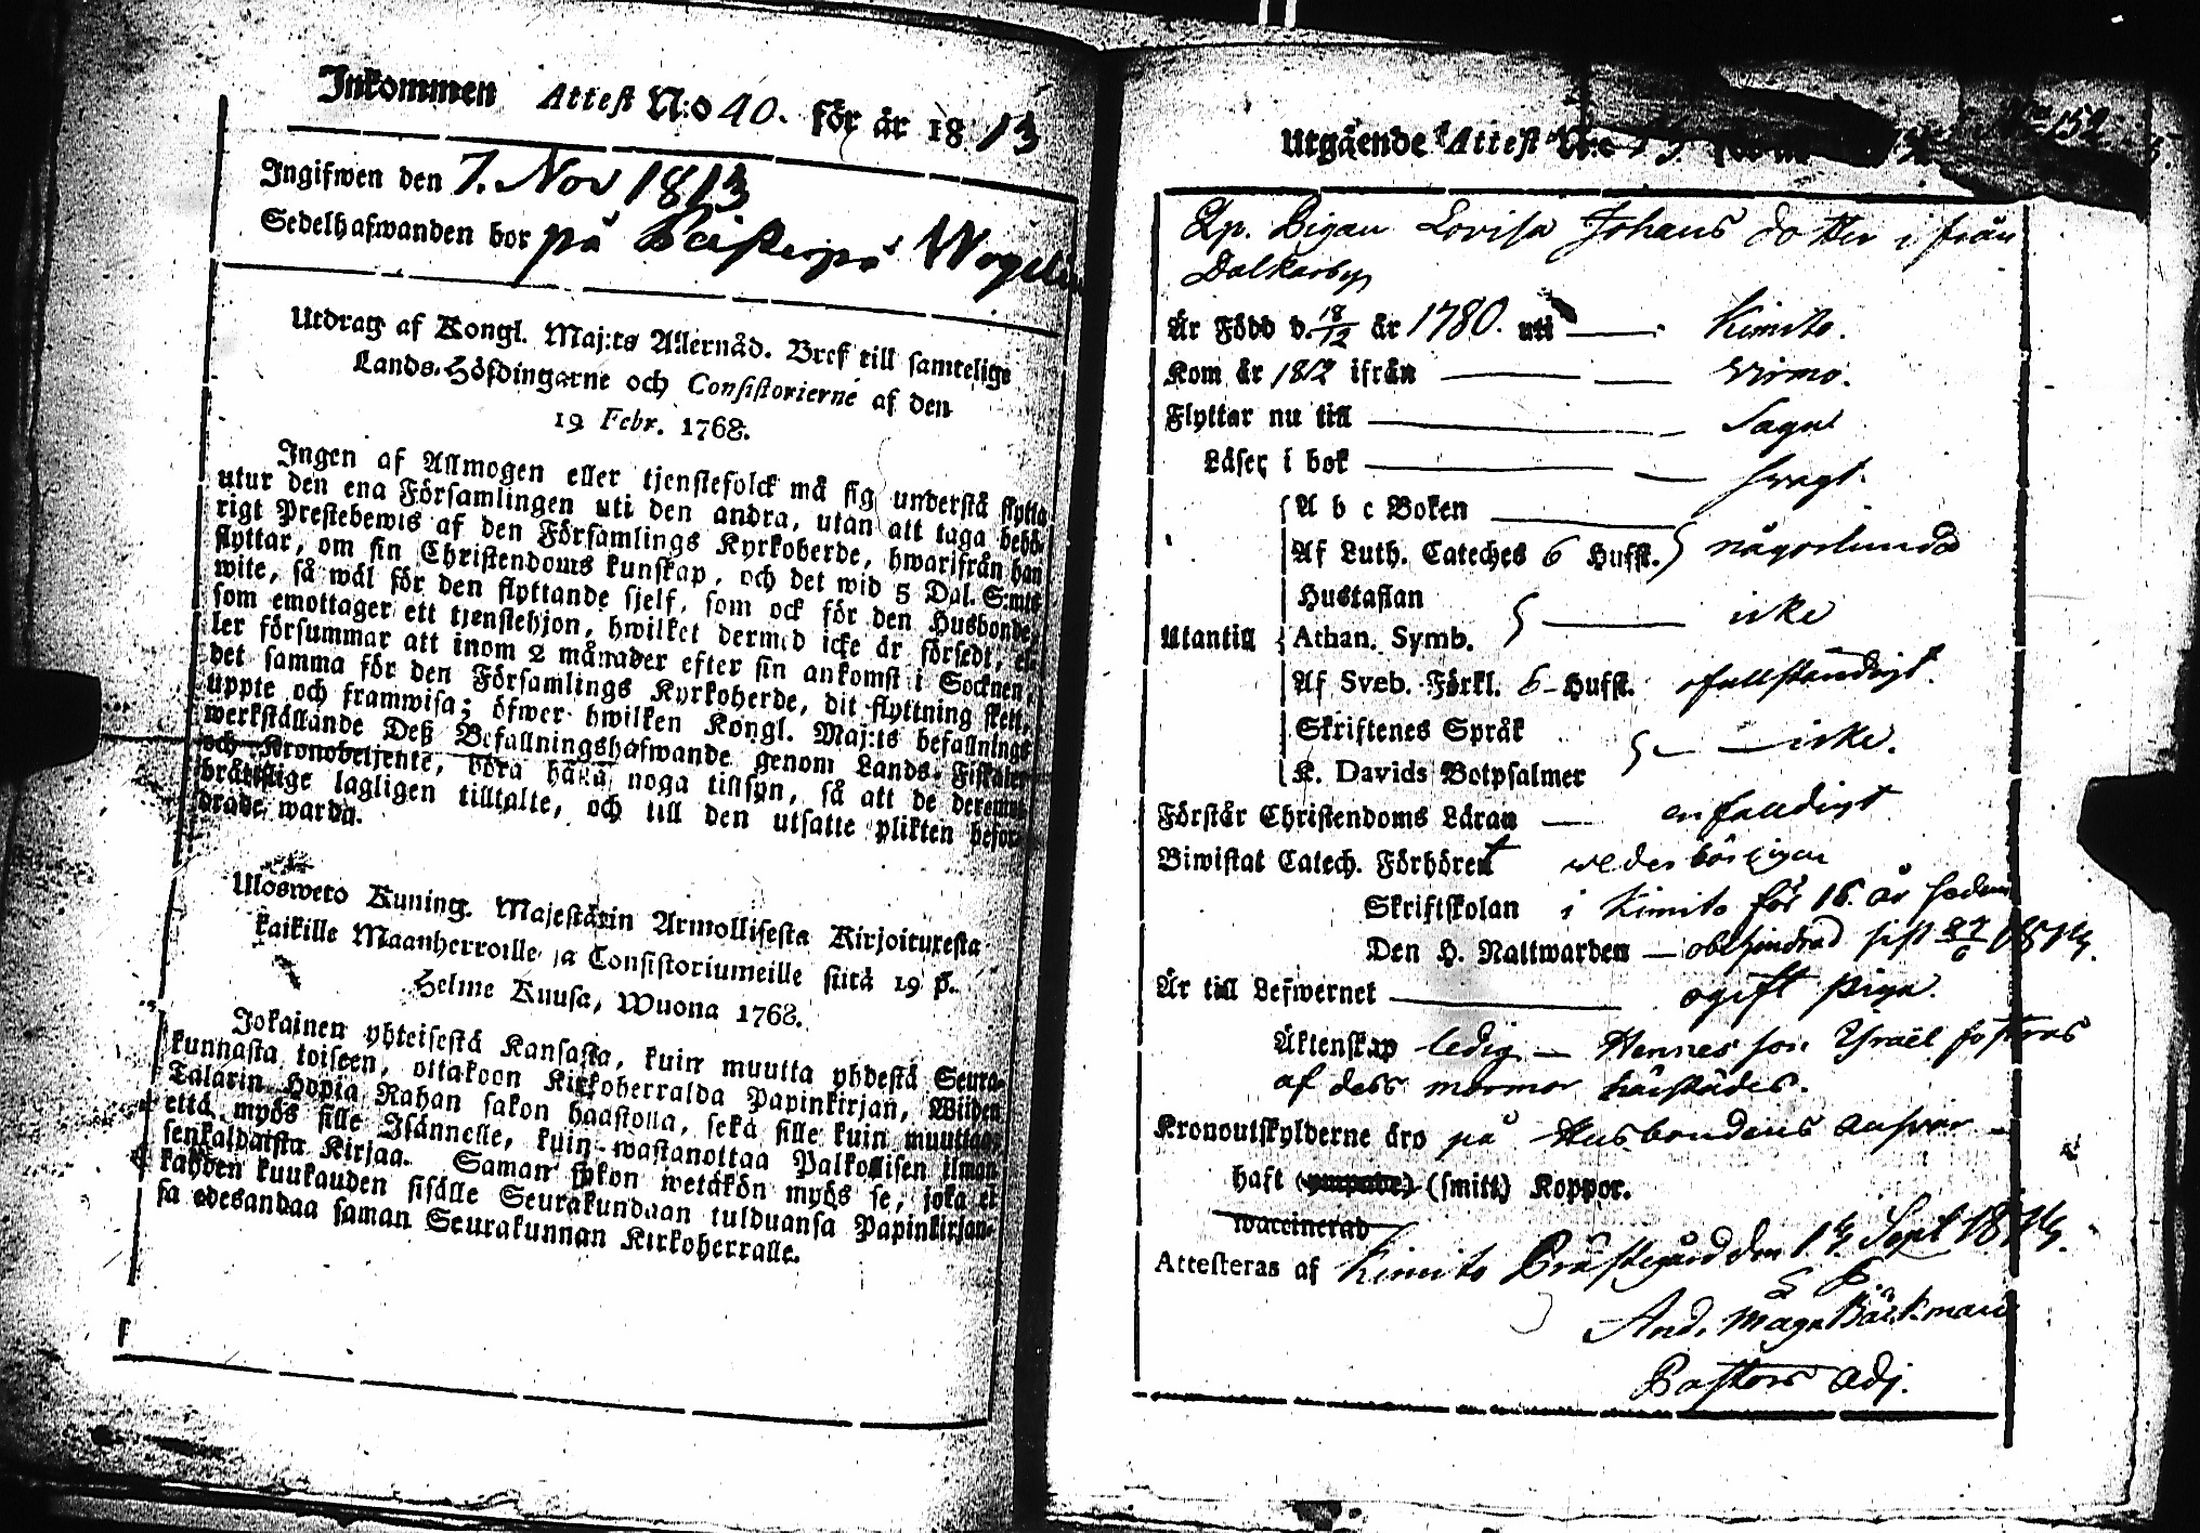 Inkommen Attest N:o 40. för år 1813
Ingifwen den 7. Nov 1813
Sedelhafwanden bor på
Utdrag af Kongl. Maj:ts Allernåd. Bref till samtelige
Lands-Höfdingarne och Consistorierne af den
19 Febr. 1768.
Ingen af Allmogen eller tjenstefolck må sig understå flytta
utur den ena Församlingen uti den andra, utan att taga behö-
rigt Prestebewis af den Församlings Kyrkoherde, hwarifrån han
flyttar, om sin Christendoms kunskap, och det wid 5 Dal. S:mts
wite, så wäl för den flyttande sjelf, som ock för den Husbonde,
som emottager ett tjenstehjon, hwilket dermed icke är försedt, el-
ler försummar att inom 2 månader efter sin ankomst i Socknen,
det samma för den Församlings Kyrkoherde, dit flyttning skett,
uppte och framwisa; öfwer hwilken Kongl. Maj:ts befallnings
werkställande Deß Befallningshafwande genom Lands-Fiskaler
och Kronobetjente, böra hålla noga tillsyn, så att de deremot
bråttslige lagligen tilltalte, och till den utsatte plikten befor-
drade warda.
Ulosweto Kuning. Majestätin Armollisesta Kirjoituxesta
kaikille Maanherroille ja Consistoriumeille siitä 19 p.
Helme Kuusa, Wuona 1768.
Jokainen yhteisestä Kansasta, kuin muutta yhdestä Seura-
kunnasta toiseen, ottakoon Kirkoherralda Papinkirjan, Wiiden
Talarin Hopia Rahan sakon haastolla, sekä sille kuin muuttaa,
että myös sille Isännelle, kuin wastanottaa Palkollisen ilman
senkaldaista Kirjaa. Saman sakon wetäkön myös se, joka ei
kahden kuukauden sisälle Seurakundaan tulduansa Papinkirjan-
sa edesandaa saman Seurakunnan Kirkoherralle.
Utgående Attest N:o 152
Qp. Pigan Lovisa Johans dotter ifrån
Dalkarby
Är Född d. 18/12 år 1780. uti Kimito.
Kom år 1812 ifrån Virmo.
Flyttar nu till Sagu
Läser i bok swagt.
A b c Boken
Af Luth. Cateches 6 Hufst. någorlunda
Hustaflan
Utantill Athan. Symb. icke
Af Sveb. Förkl. 6 Hufst. ofullständigt.
Skriftenes Språk
K. Davids Botpsalmer icke.
Förstår Christendoms Läran enfaldigt
Biwistat Catech. Förhöret wederbörligen
Skriftskolan i Kimito för 16 år sedan
Den H. Nattwarden obehindrad sist 1814.
Är till Lefwernet ogift piga.
Äktenskap ledig – Hennes son Israël fostras
af dess mormor härstädes.
Kronoutskylderne äro på Husbondens answar
haft (ympade) (smitt) Koppor.
waccinerad
Attesteras af Kimito Prästegård den 14. Sept 1814.
And. Magn Bäckman
Pastors Adj.